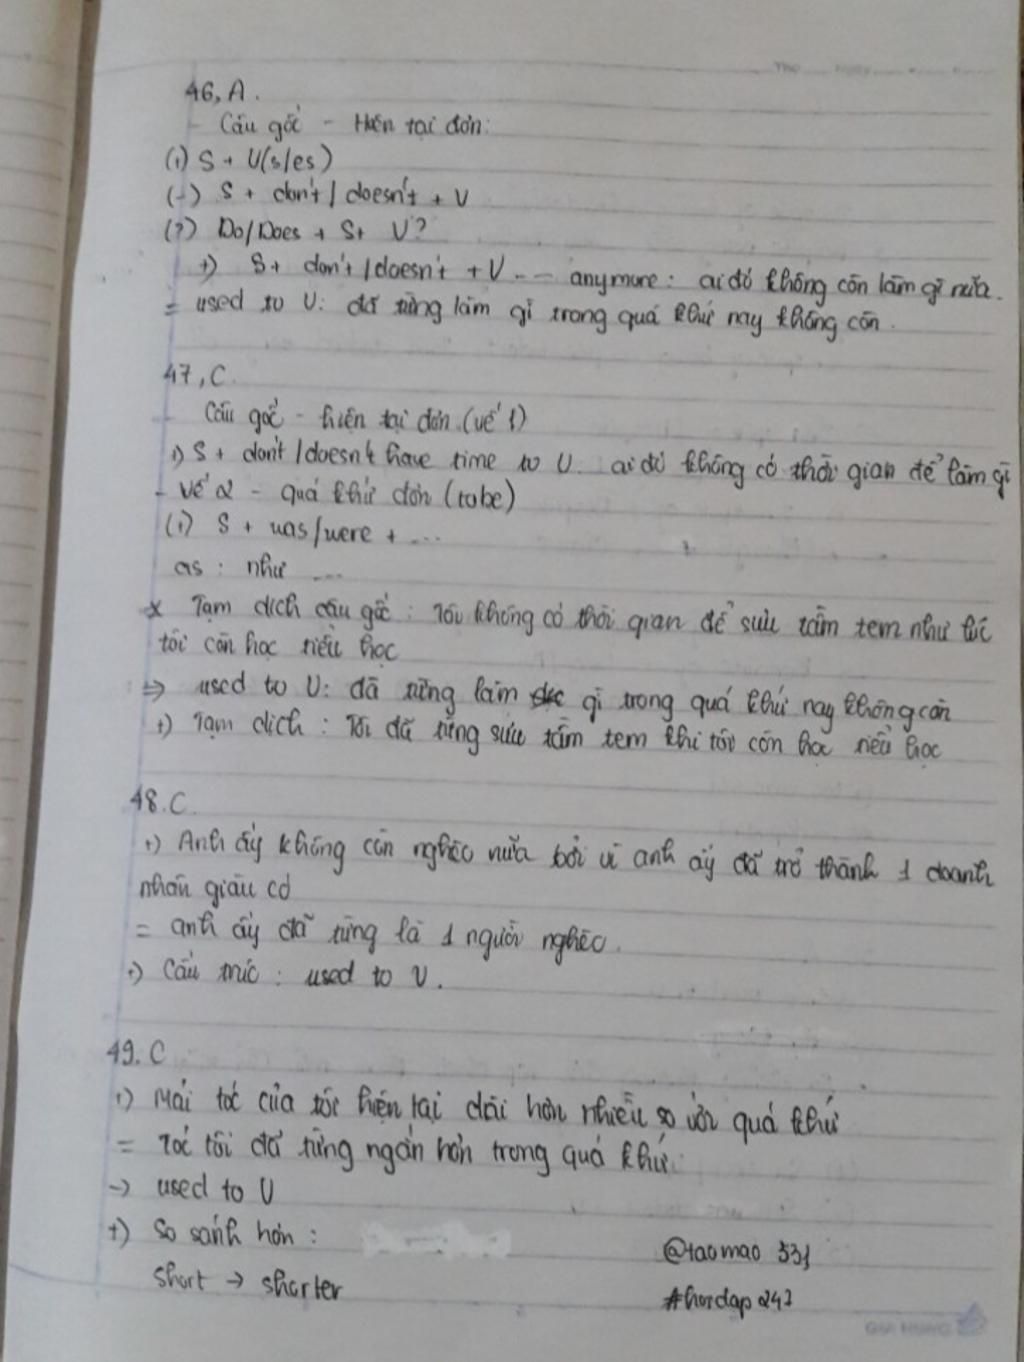 46, A.
- Câu gốc - Hiện tại đơn:
(+) S + V(s/es)
(-) S + don't / doesn't + V
(?) Do/Does + S + V?
+) S + don't / doesn't + V ... anymore : ai đó không còn làm gì nữa.
= used to V: đã từng làm gì trong quá khứ nay không còn.
47, C.
- Câu gốc - hiện tại đơn (vế 1)
+) S + don't / doesn't have time to V: ai đó không có thời gian để làm gì
- Vế 2 - quá khứ đơn (tobe)
(+) S + was/were + ...
as : như ...
* Tạm dịch câu gốc : Tôi không có thời gian để sưu tầm tem như lúc
tôi còn học tiểu học
=> used to V: đã từng làm gì trong quá khứ nay không còn
+) Tạm dịch : Tôi đã từng sưu tầm tem khi tôi còn học tiểu học
48. C.
+) Anh ấy không còn nghèo nữa bởi vì anh ấy đã trở thành 1 doanh
nhân giàu có
= anh ấy đã từng là 1 người nghèo.
+) Cấu trúc : used to V.
49. C
+) Mái tóc của tôi hiện tại dài hơn nhiều so với quá khứ
= Tóc tôi đã từng ngắn hơn trong quá khứ.
-> used to V
+) So sánh hơn :
short -> shorter
@taomao 531
#hoidap247
GIA HUNG